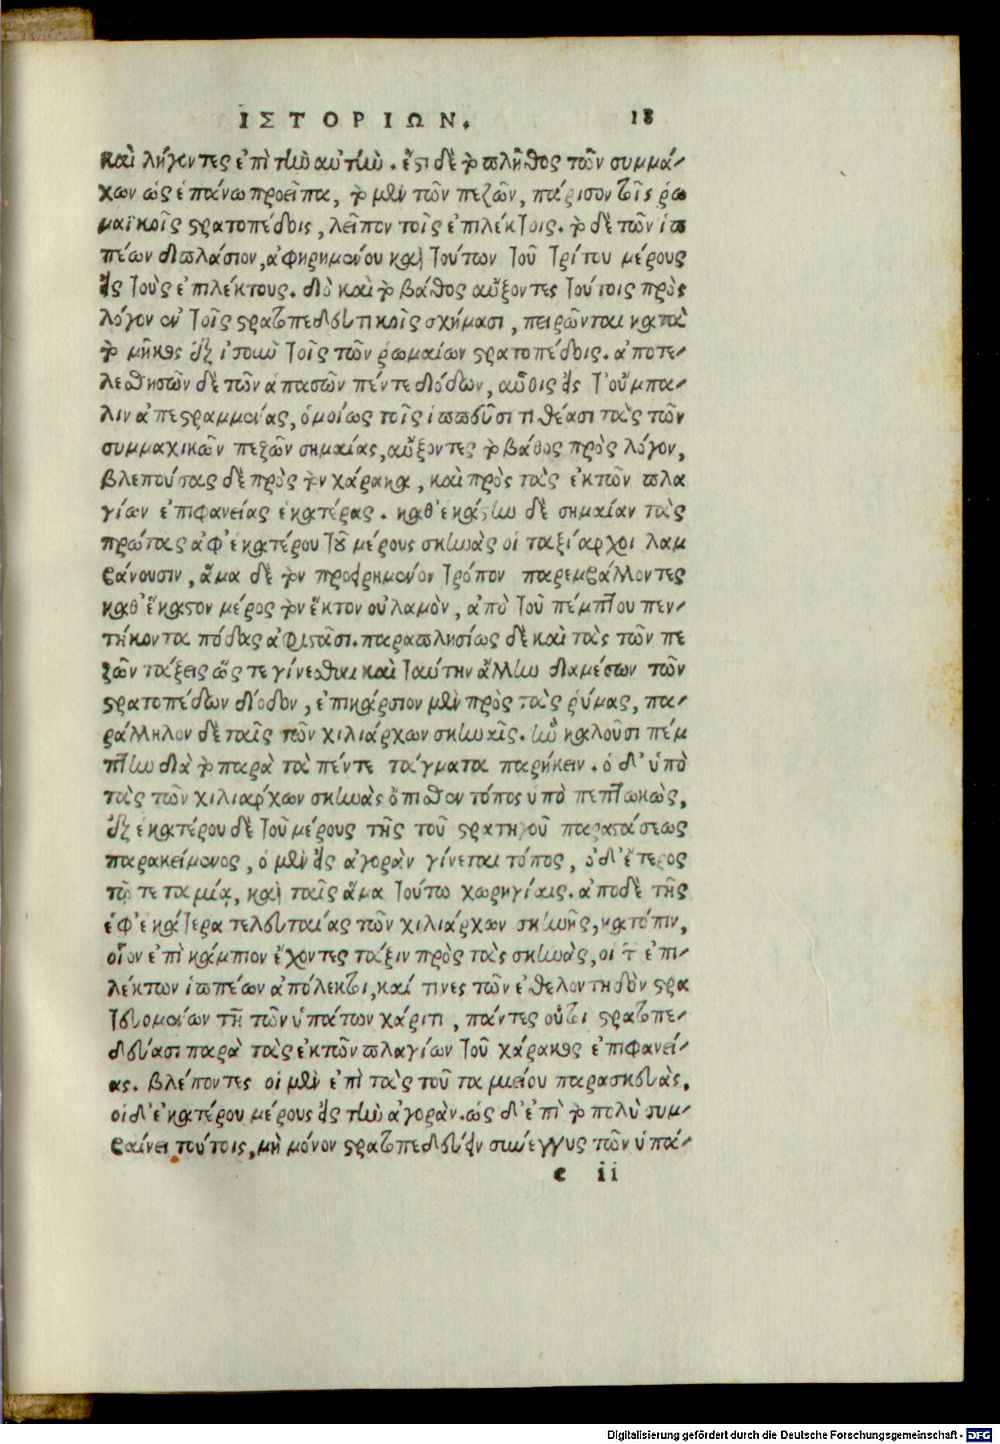 ΙΣΤΟΡΙΩΝ. 18
καὶ λήγοντες ἐπὶ τὴν αὐτὴν. ἔστι δὲ τὸ πλῆθος τῶν συμμά-
χων ὡς ἐπάνω προεῖπα, τὸ μὲν τῶν πεζῶν, πάρισον τοῖς ῥω
μαϊκοῖς στρατοπέδοις, λεῖπον τοῖς ἐπιλέκτοις. τὸ δὲ τῶν ἱπ
πέων διπλάσιον, ἀφῃρημένου καὶ τούτων τοῦ τρίτου μέρους
εἰς τοὺς ἐπιλέκτους. διὸ καὶ τὸ βάθος αὔξοντες τούτοις πρὸς
λόγον ἐν τοῖς στρατοπεδευτικοῖς σχήμασι, πειρῶνται κατὰ
τὸ μῆκος ἐξισοῦν τοῖς τῶν ῥωμαίων στρατοπέδοις. ἀποτε-
λεσθησῶν δὲ τῶν ἁπασῶν πέντε διόδων, αὖθις εἰς τοὔμπα-
λιν ἀπεστραμμένας, ὁμοίως τοῖς ἱππεῦσι τιθέασι τὰς τῶν
συμμαχικῶν πεζῶν σημαίας, αὔξοντες τὸ βάθος πρὸς λόγον,
βλεπούσας δὲ πρὸς τὸν χάρακα, καὶ πρὸς τὰς ἐκ τῶν πλα
γίων ἐπιφανείας ἑκατέρας. καθ' ἑκάστην δὲ σημαίαν τὰς
πρώτας ἀφ' ἑκατέρου τοῦ μέρους σκηνὰς οἱ ταξίαρχοι λαμ
βάνουσιν, ἅμα δὲ τὸν προειρημένον τρόπον παρεμβάλλοντες
καθ' ἕκαστον μέρος τὸν ἕκτον οὐλαμὸν, ἀπὸ τοῦ πέμπτου πεν-
τήκοντα πόδας ἀφιστᾶσι. παραπλησίως δὲ καὶ τὰς τῶν πε
ζῶν τάξεις ὥς τε γίνεσθαι καὶ ταύτην ἄλλην διαμέσων τῶν
στρατοπέδων δίοδον, ἐπικάρσιον μὲν πρὸς τὰς ῥύμας, πα-
ράλληλον δὲ ταῖς τῶν χιλιάρχων σκηναῖς. ἣν καλοῦσι πέμ
πτην διὰ τὸ παρὰ τὰ πέντε τάγματα παρήκειν. ὁ δ' ὑπὸ
τὰς τῶν χιλιάρχων σκηνὰς ὄπισθεν τόπος ὑπὸ πεπτωκὼς,
ἐξ ἑκατέρου δὲ τοῦ μέρους τῆς τοῦ στρατηγοῦ παραστάσεως
παρακείμενος, ὁ μὲν εἰς ἀγορὰν γίνεται τόπος, ὁ δ' ἕτερος
τῷ τε ταμίᾳ, καὶ ταῖς ἅμα τούτω χωρηγίαις. ἀπὸ δὲ τῆς
ἐφ' ἑκάτερα τελευταίας τῶν χιλιάρχων σκηνῆς, κατόπιν,
οἷον ἐπὶ κάμπιον ἔχοντες τάξιν πρὸς τὰς σκηνὰς, οἱ τ ἐπι-
λέκτων ἱππέων ἀπόλεκτοι, καί τινες τῶν ἐθελοντηδὸν στρα
τευομένων τῇ τῶν ὑπάτων χάριτι, πάντες οὗτοι στρατοπε-
δεύασι παρὰ τὰς ἐκ τῶν πλαγίων τοῦ χάρακος ἐπιφανεί-
ας. βλέποντες οἱ μὲν ἐπὶ τὰς τοῦ ταμιείου παρασκευὰς,
οἱ δ' ἑκατέρου μέρους εἰς τὴν ἀγορὰν. ὡς δ' ἐπὶ τὸ πολὺ συμ-
βαίνει τούτοις, μὴ μόνον στρατοπεδεύειν συνεγγυς τῶν ὑπά-
e ii
Digitalisierung gefördert durch die Deutsche Forschungsgemeinschaft - DFG